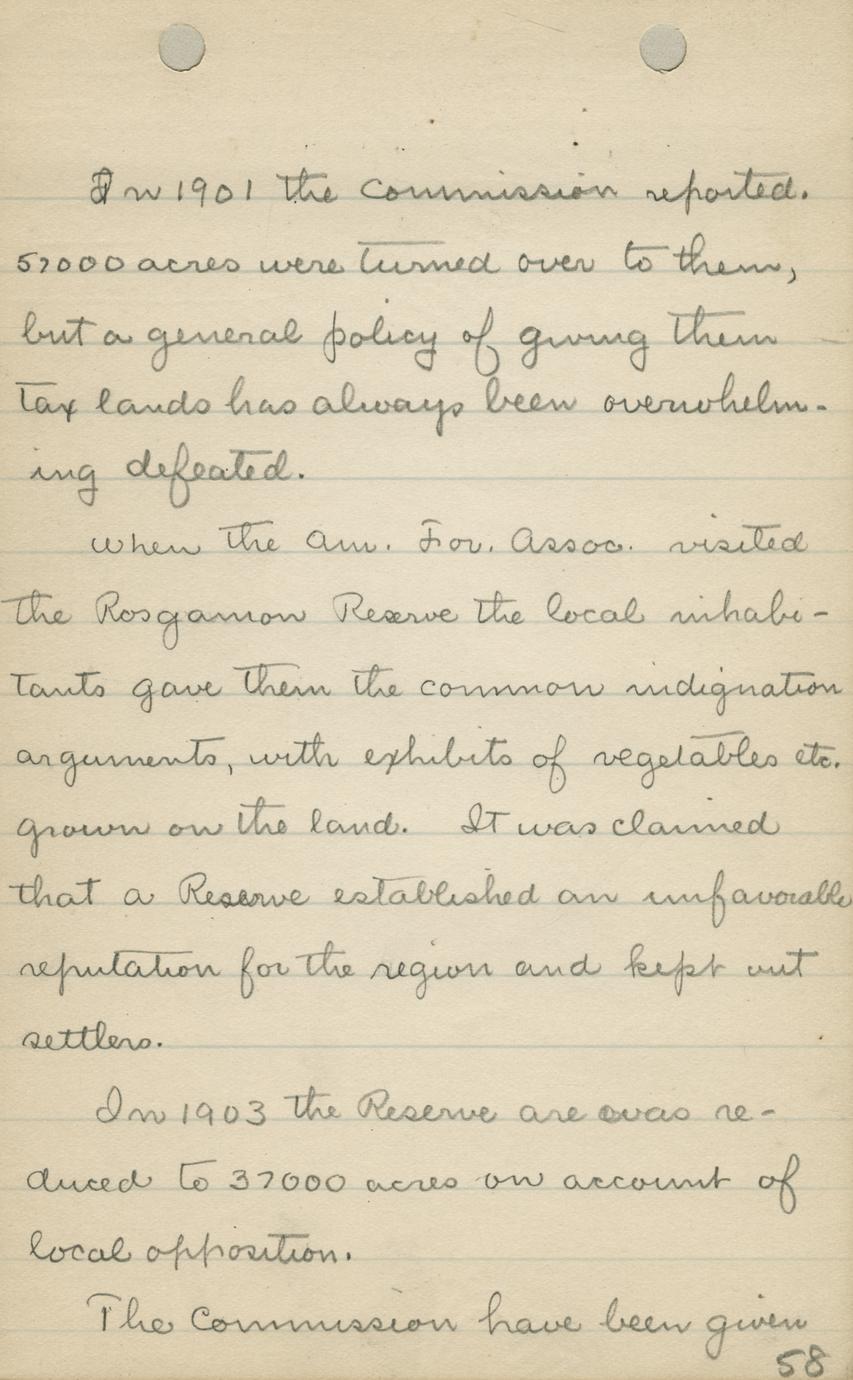 In 1901 the Commission reported.
57000 acres were turned over to them,
but a general policy of giving them
tax lands has always been overwhelm-
ing defeated.
When the Am. For. Assoc. visited
the Rosgamon Reserve the local inhabi-
tants gave them the common indignation
arguments, with exhibits of vegetables etc.
grown on the land. It was claimed
that a Reserve established an unfavorable
reputation for the region and kept out
settlers.
In 1903 the Reserve are was re-
duced to 37000 acres on account of
local opposition.
The Commission have been given
58